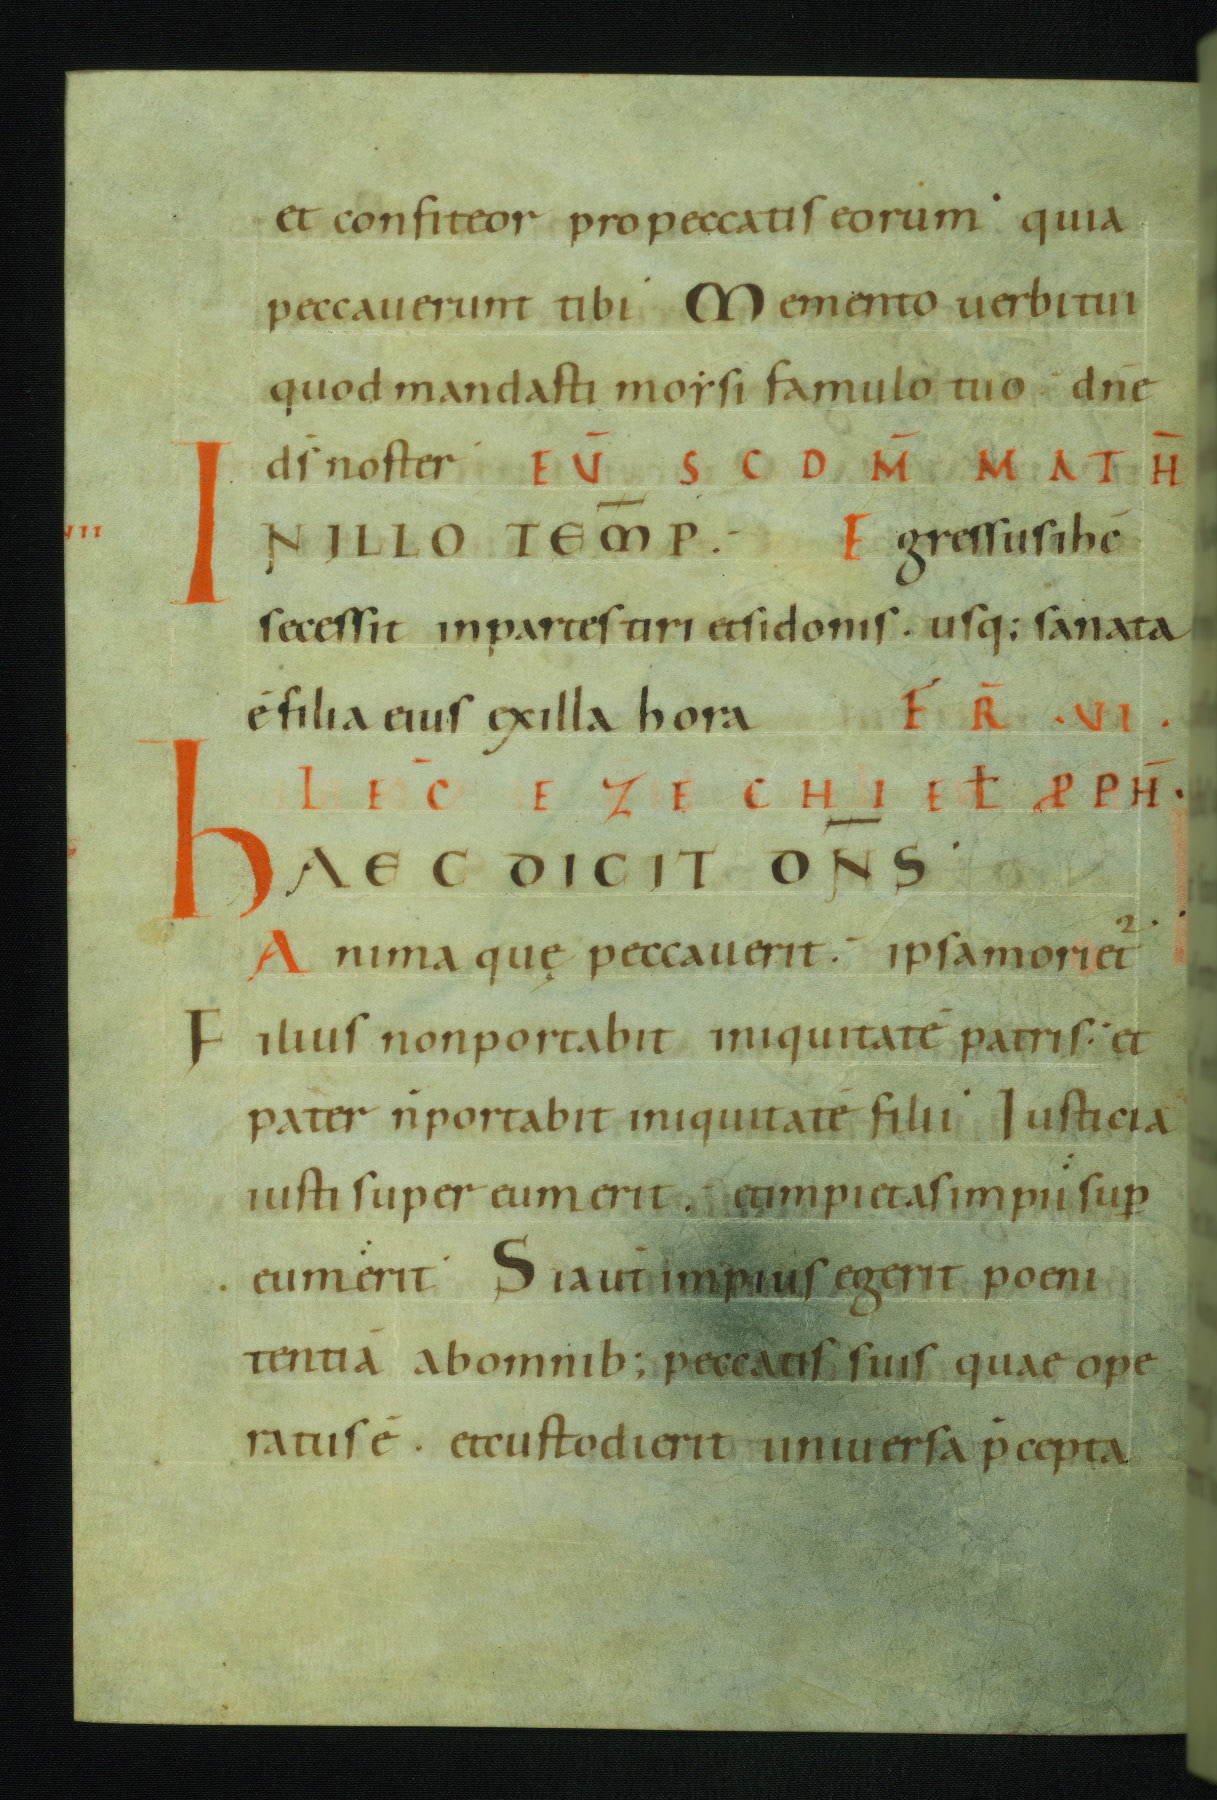 et confiteor pro peccatis eorum· quia
peccauerunt tibi· Memento uerbi tui
quod mandasti moysi famulo tuo· dñe
ds̄ noster· EŪ SCDM̄ MATH̄
INILLO TEM̄P·- Egressus ihc̄
secessit in partes tiri et sidonis. usq; sanata
ē filia eius ex illa hora FR̄ ·VI·
LEC̄ EZECHIEƚ PPH̄·
hAEC DICIT DN̄S·
VII
Anima quę peccauerit·- ipsa morieт̄²·
Filius non portabit iniquitatē patris·' et
pater n̄ portabit iniquitatē filii· Iusticia
iusti super eum erit·- et impietas impii sup
eum erit· Si aut̄ impius egerit poeni
tentiā ab omnib; peccatis suis quae ope
ratus ē· et custodierit uniuersa p̄cepta